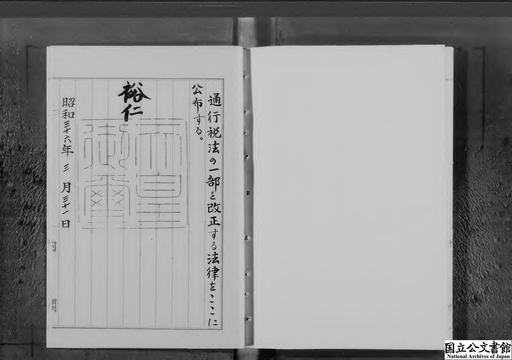 通行税法の一部を改正する法律をここに
公布する。
裕仁
天皇
御璽
昭和三十六年三月三十一日
国立公文書館
National Archives of Japan